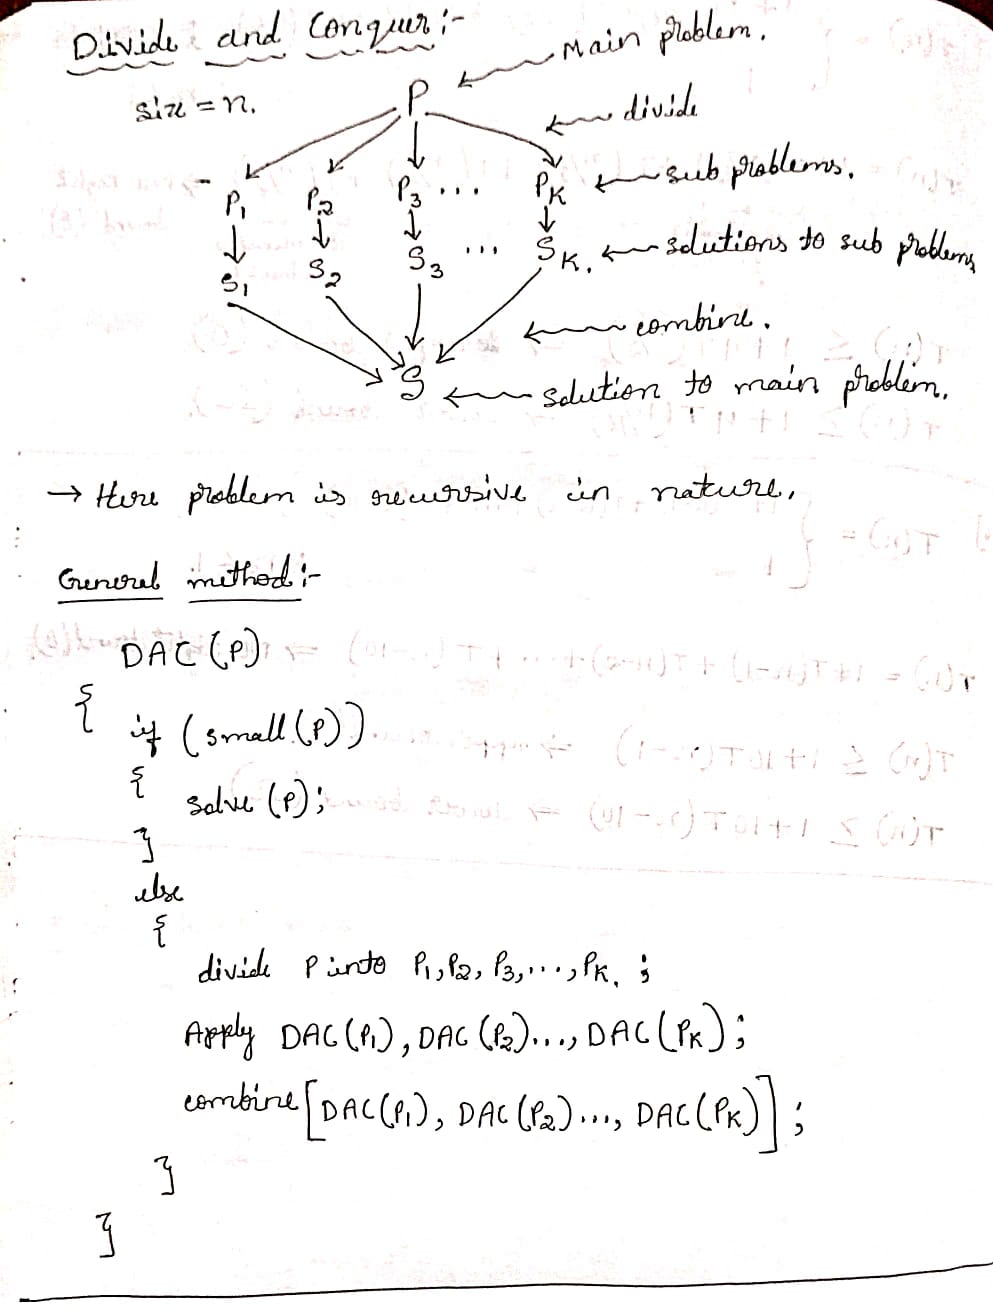 Divide and Conquer :-
Main problem.
size = n.
P
divide
P1 P2 P3 ... PK
sub problems.
S1 S2 S3 ... SK.
solutions to sub problems
combine.
S
solution to main problem.
→ Here problem is recursive in nature.
General method :-
DAC (P)
{
if (small (P))
{
solve (P);
}
else
{
divide P into P1, P2, P3, ..., PK. ;
Apply DAC (P1), DAC (P2)..., DAC (PK);
combine [DAC(P1), DAC (P2)..., DAC(PK)];
}
}